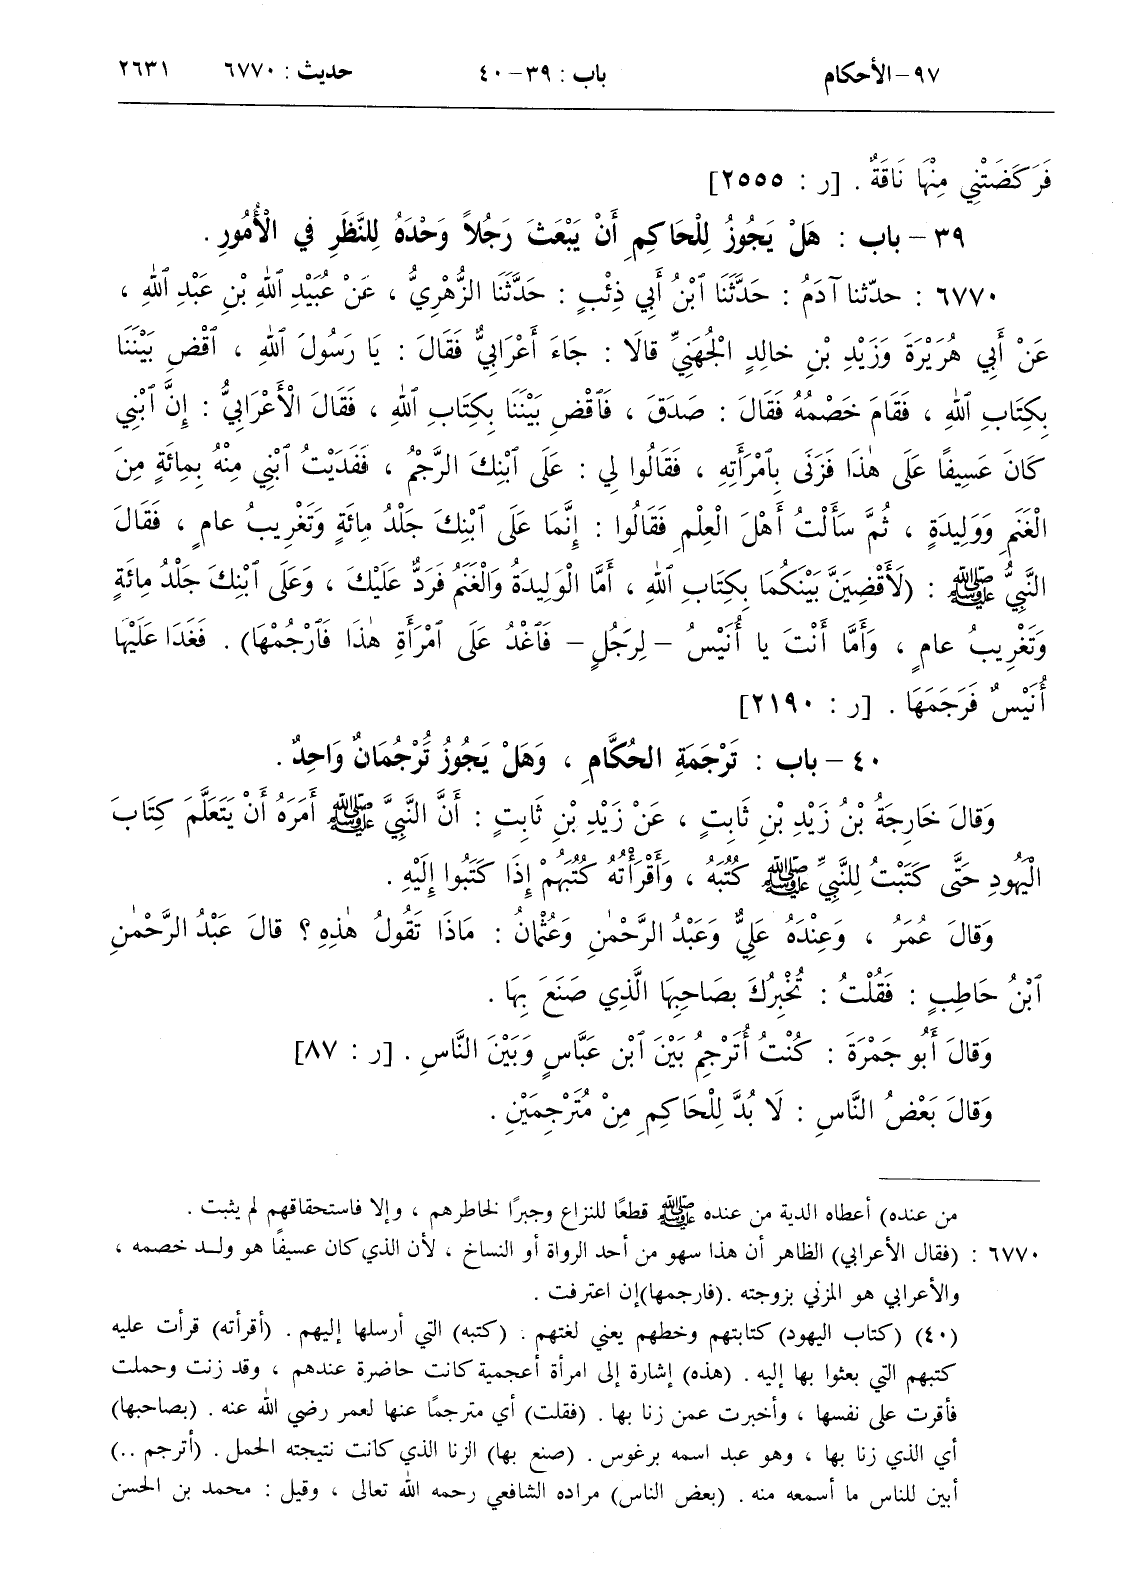 ٩٧ – الأحكام باب : ٣٩ – ٤٠ حديث : ٦٧٧٠ ٢٦٣١
فَرَكَضَتْنِي مِنْهَا نَاقَةٌ . [ر : ٢٥٥٥]
٣٩ – باب : هَلْ يَجُوزُ لِلْحَاكِمِ أَنْ يَبْعَثَ رَجُلاً وَحْدَهُ لِلنَّظَرِ في الْأُمُورِ .
٦٧٧٠ : حدّثنا آدَمُ : حَدَّثَنَا ٱبْنُ أَبِي ذِئْبٍ : حَدَّثَنَا الزُّهْرِيُّ ، عَنْ عُبَيْدِ اللهِ بْنِ عَبْدِ اللهِ ،
عَنْ أَبِي هُرَيْرَةَ وَزَيْدِ بْنِ خالِدٍ الْجُهَنِيِّ قالَا : جَاءَ أَعْرَابِيٌّ فَقَالَ : يَا رَسُولَ اللهِ ، ٱقْضِ بَيْنَنَا
بِكِتَابِ اللهِ ، فَقَامَ خَصْمُهُ فَقَالَ : صَدَقَ ، فَٱقْضِ بَيْنَنَا بِكِتَابِ اللهِ ، فَقَالَ الْأَعْرَابِيُّ : إِنَّ ٱبْنِي
كَانَ عَسِيفًا عَلَى هٰذَا فَزَنَى بِٱمْرَأَتِهِ ، فَقَالُوا لِي : عَلَى ٱبْنِكَ الرَّجْمُ ، فَفَدَيْتُ ٱبْنِي مِنْهُ بِمِائَةٍ مِنَ
الْغَنَمِ وَوَلِيدَةٍ ، ثُمَّ سَأَلْتُ أَهْلَ الْعِلْمِ فَقَالُوا : إِنَّمَا عَلَى ٱبْنِكَ جَلْدُ مِائَةٍ وَتَغْرِيبُ عامٍ ، فَقَالَ
النَّبِيُّ ﷺ : (لَأَقْضِيَنَّ بَيْنَكُمَا بِكِتَابِ اللهِ ، أَمَّا الْوَلِيدَةُ وَالْغَنَمُ فَرَدٌّ عَلَيْكَ ، وَعَلَى ٱبْنِكَ جَلْدُ مِائَةٍ
وَتَغْرِيبُ عامٍ ، وَأَمَّا أَنْتَ يا أُنَيْسُ – لِرَجُلٍ – فَٱغْدُ عَلَى ٱمْرَأَةِ هٰذَا فَٱرْجُمْهَا) . فَغَدَا عَلَيْهَا
أُنَيْسٌ فَرَجَمَهَا . [ر : ٢١٩٠]
٤٠ – باب : تَرْجَمَةِ الحُكَّامِ ، وَهَلْ يَجُوزُ تُرْجُمَانٌ وَاحِدٌ .
وَقالَ خَارِجَةُ بْنُ زَيْدِ بْنِ ثَابِتٍ ، عَنْ زَيْدِ بْنِ ثَابِتٍ : أَنَّ النَّبِيَّ ﷺ أَمَرَهُ أَنْ يَتَعَلَّمَ كِتَابَ
الْيَهُودِ حَتَّى كَتَبْتُ لِلنَّبِيِّ ﷺ كُتُبَهُ ، وَأَقْرَأْتُهُ كُتُبَهُمْ إِذَا كَتَبُوا إِلَيْهِ .
وَقالَ عُمَرُ ، وَعِنْدَهُ عَلِيٌّ وَعَبْدُ الرَّحْمٰنِ وَعُثْمَانُ : مَاذَا تَقُولُ هٰذِهِ ؟ قالَ عَبْدُ الرَّحْمٰنِ
ٱبْنُ حَاطِبٍ : فَقُلْتُ : تُخْبِرُكَ بِصَاحِبِهَا الَّذِي صَنَعَ بِهَا .
وَقالَ أَبُو جَمْرَةَ : كُنْتُ أُتَرْجِمُ بَيْنَ ٱبْنِ عَبَّاسٍ وَبَيْنَ النَّاسِ . [ر : ٨٧]
وَقالَ بَعْضُ النَّاسِ : لَا بُدَّ لِلْحَاكِمِ مِنْ مُتَرْجِمَيْنِ .
من عنده) أعطاه الدية من عنده ﷺ قطعًا للنزاع وجبرًا لخاطرهم ، وإلا فاستحقاقهم لم يثبت .
٦٧٧٠ : (فقال الأعرابي) الظاهر أن هذا سهو من أحد الرواة أو النساخ ، لأن الذي كان عسيفًا هو ولد خصمه ،
والأعرابي هو المزني بزوجته .(فارجمها)إن اعترفت .
(٤٠) (كتاب اليهود) كتابتهم وخطهم يعني لغتهم . (كتبه) التي أرسلها إليهم . (أقرأته) قرأت عليه
كتبهم التي بعثوا بها إليه . (هذه) إشارة إلى امرأة أعجمية كانت حاضرة عندهم ، وقد زنت وحملت
فأقرت على نفسها ، وأخبرت عمن زنا بها . (فقلت) أي مترجمًا عنها لعمر رضي الله عنه . (بصاحبها)
أي الذي زنا بها ، وهو عبد اسمه برغوس . (صنع بها) الزنا الذي كانت نتيجته الحمل . (أترجم ..)
أبين للناس ما أسمعه منه . (بعض الناس) مراده الشافعي رحمه الله تعالى ، وقيل : محمد بن الحسن